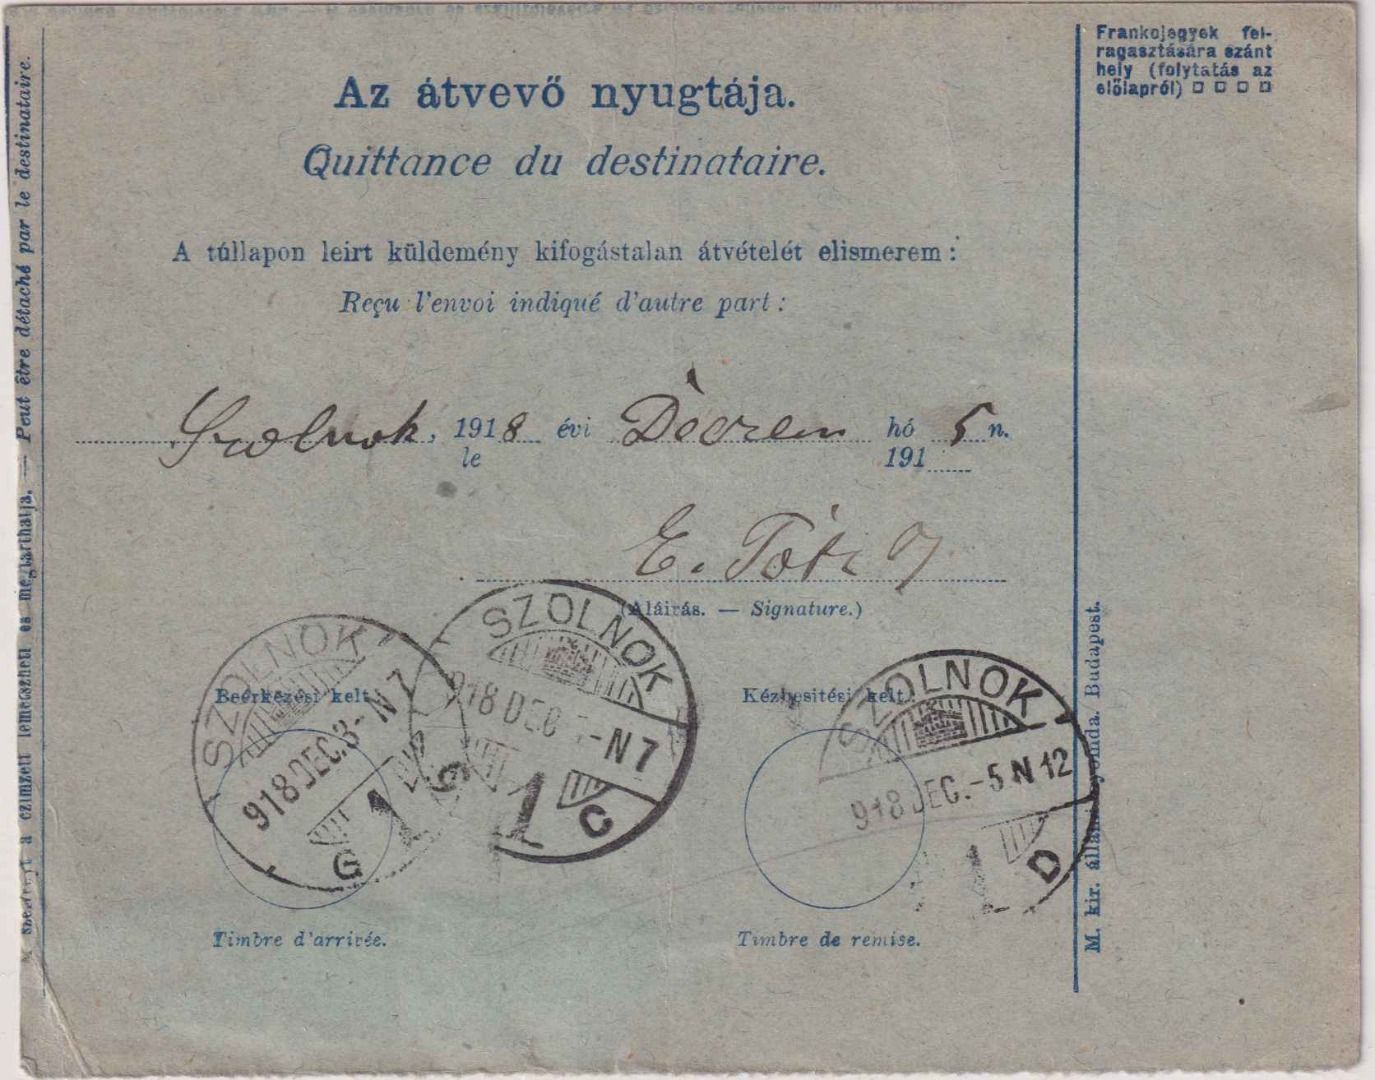 Frankojegyek fel-
ragasztására szánt
hely (folytatás az
előlapról)
Az átvevő nyugtája.
Quittance du destinataire.
A túllapon leirt küldemény kifogástalan átvételét elismerem:
Reçu l'envoi indiqué d'autre part:
Szolnok, 1918 évi Deczem hó 5 n.
le 191
E. Tóth
(Aláirás. — Signature.)
Beérkezési kelt.
Kézbesitési kelt.
SZOLNOK
918 DEC. 3 - N 7
1 G
SZOLNOK
918 DEC - N 7
1 C
SZOLNOK
918 DEC. - 5 N 12
1 D
Timbre d'arrivée.
Timbre de remise.
a czimzett lemetszheti és megtarthatja. — Peut être détaché par le destinataire.
M. kir. állami nyomda. Budapest.